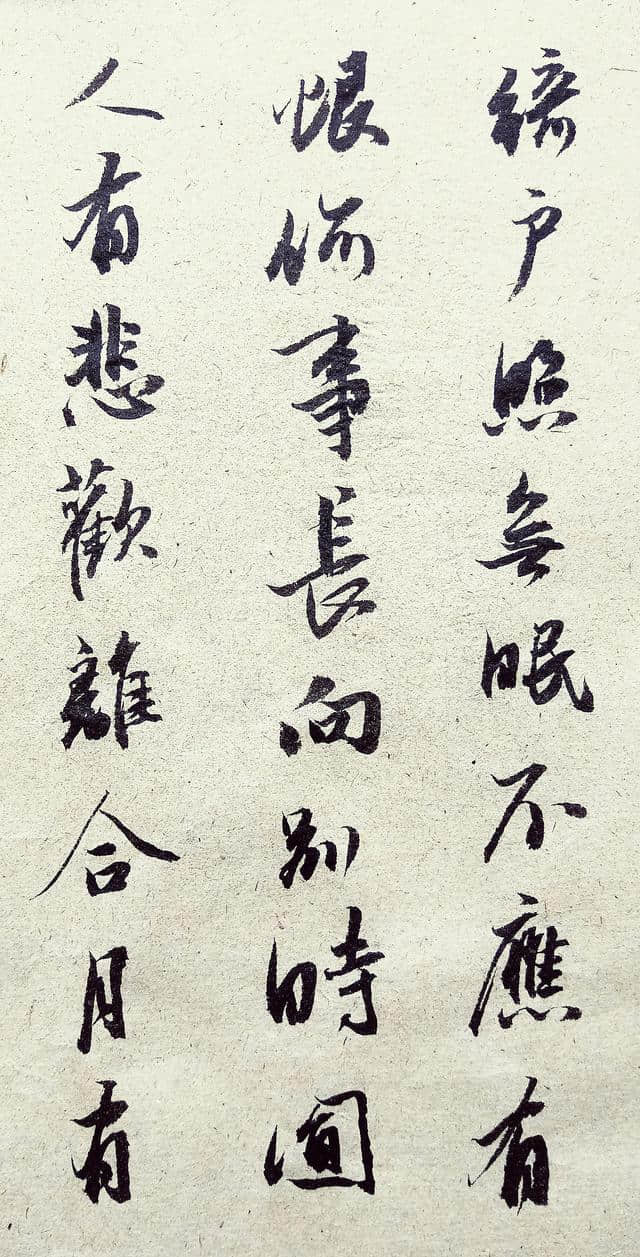 綺户照無眠不應有
恨何事長向别時圓
人有悲歡離合月有